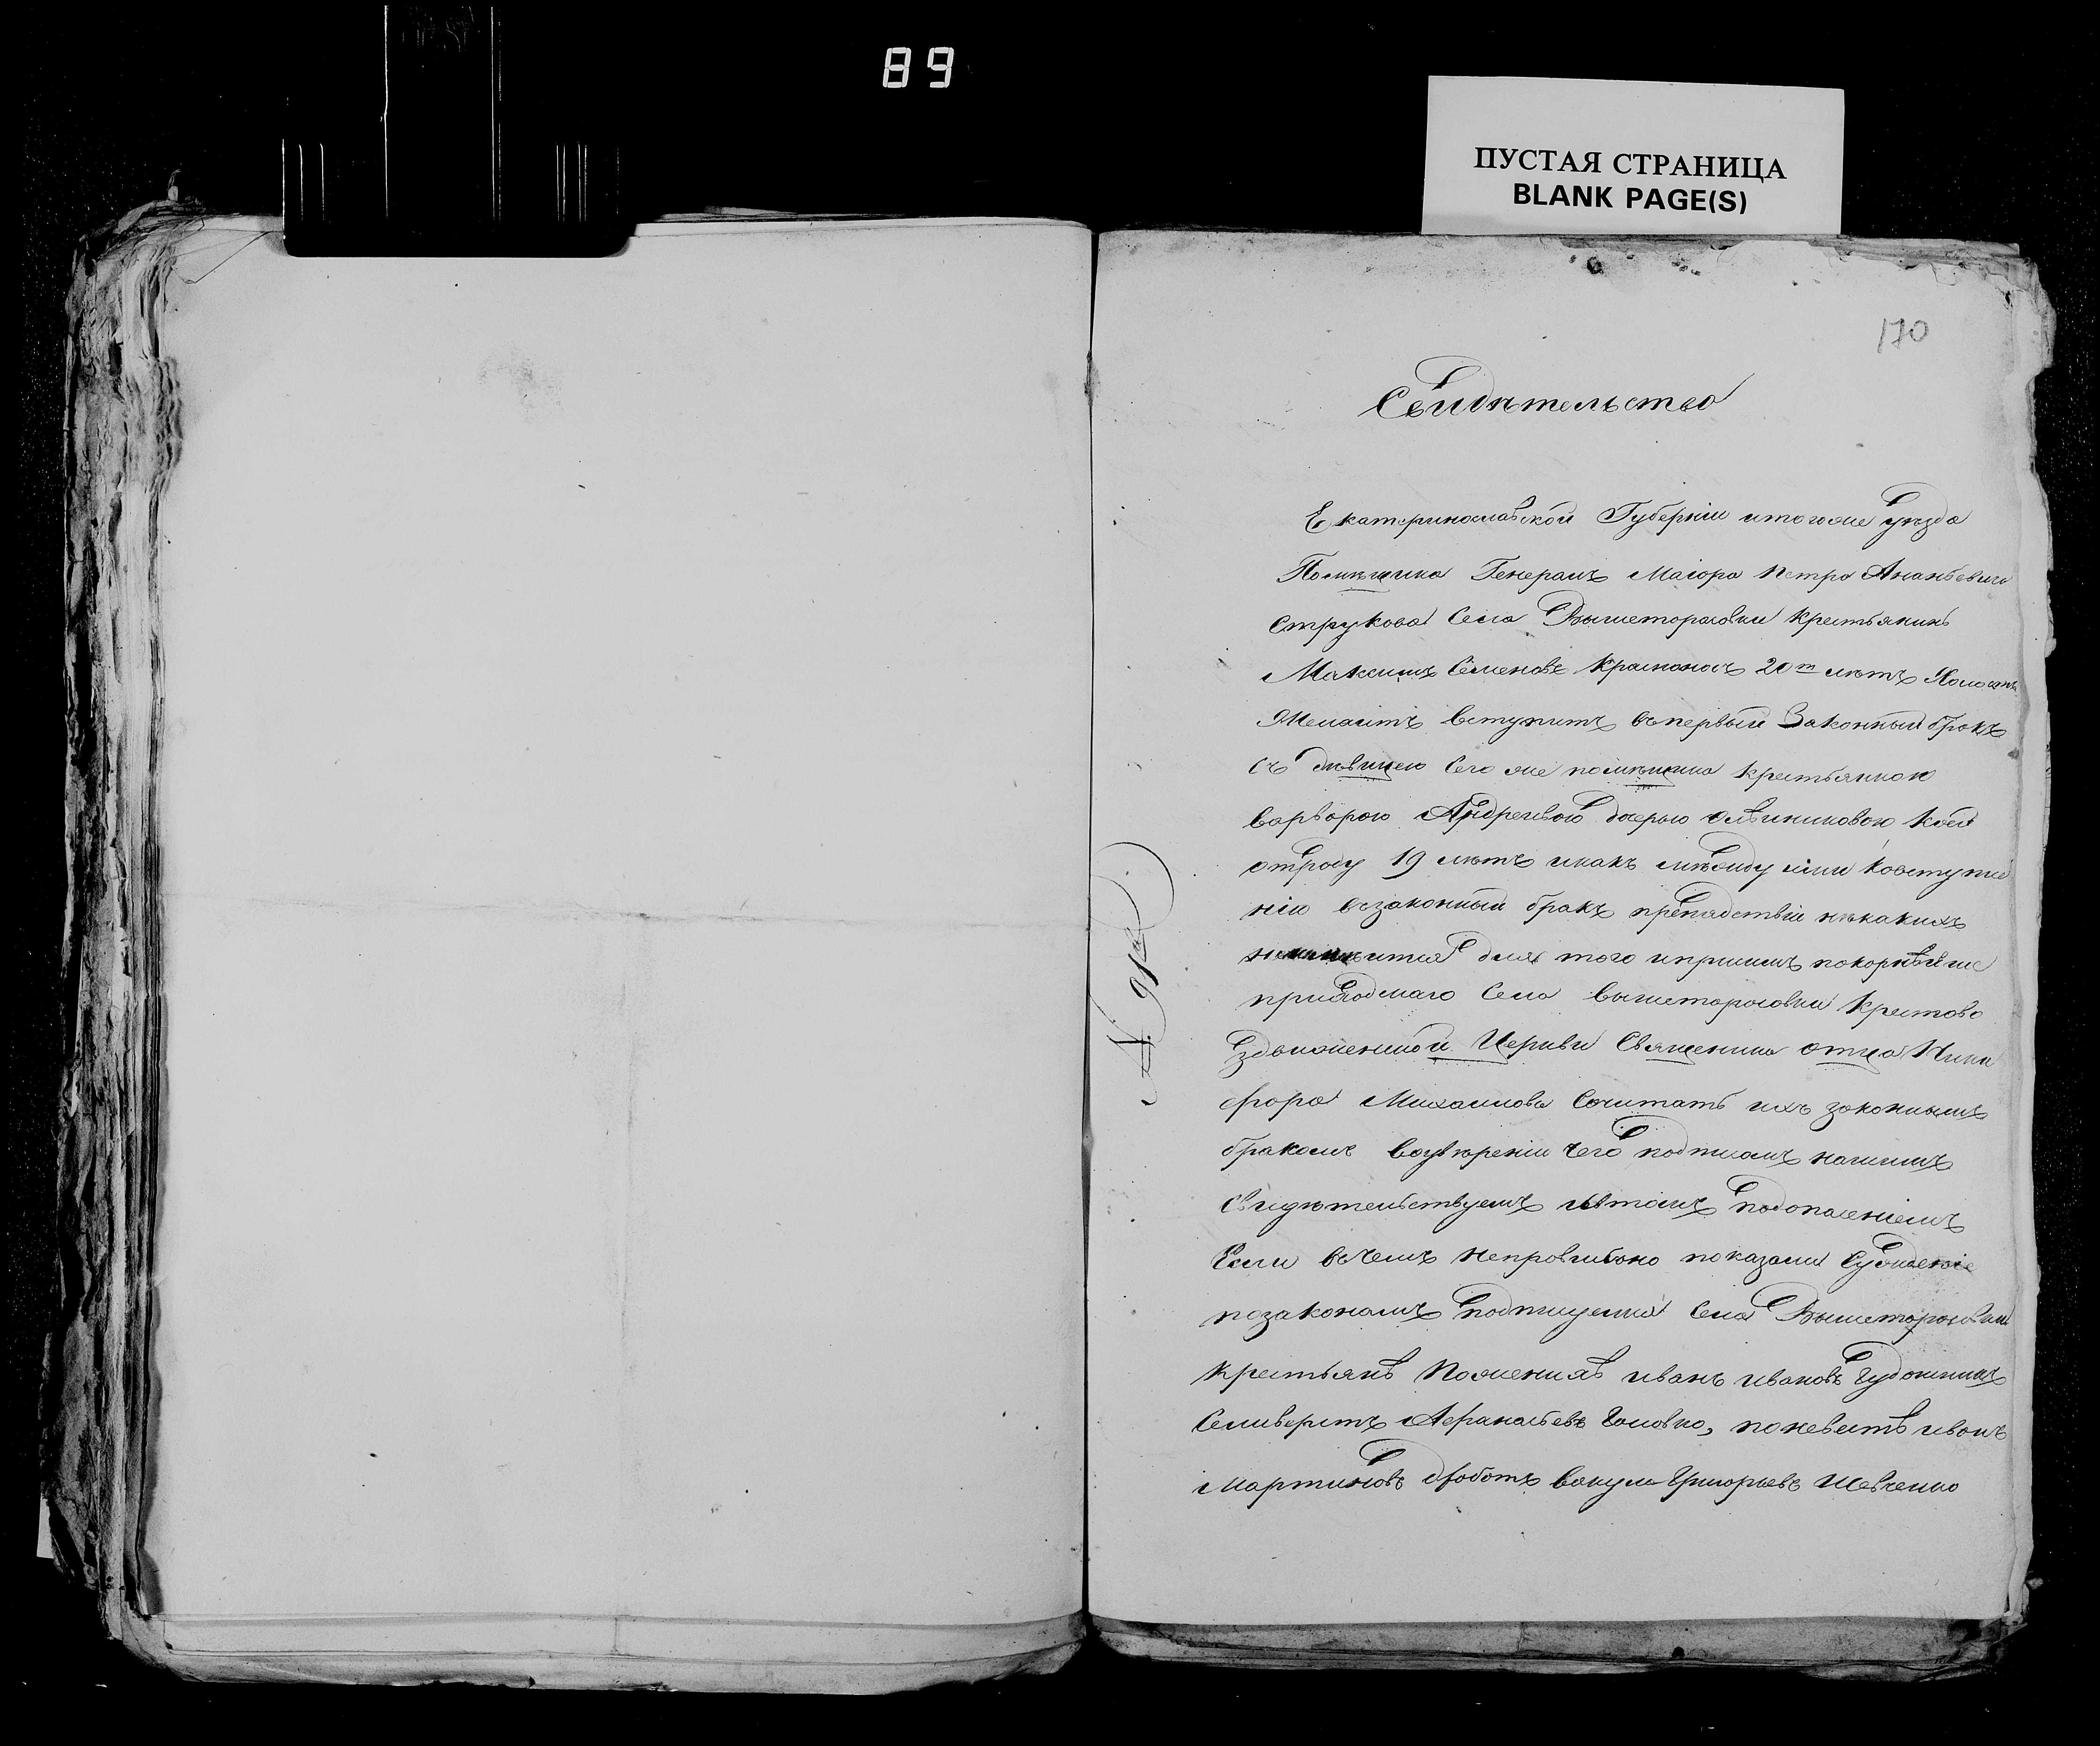 89
ПУСТАЯ СТРАНИЦА
BLANK PAGE(S)
170
Свидѣтельство
Екатеринославской Губерніи итогоже уѣзда
Помѣщика Генералъ Маіора Петра Ананьевича
Струкова Села Вышетарасовки крестьянинъ
Максимъ Семеновъ 20т лѣтъ Холостъ
Желаитъ вступитъ въпервый Законный бракъ
съ дѣвицею Сего же помѣщика крестьянкою
варворою Андреевою дочерью Кой
отроду 19 лѣтъ икакъ мѣжду ими ковступле
нію взаконный бракъ препядствіи нѣкакихъ
для того ипросимъ покорнѣйше
приходскаго Села вышетарасовки крестово
здвиженской Церкви Священика отца Ники
фора Михаилова Сочитать ихъ законнымъ
бракомъ воувѣреніи чего подписомъ нашимъ
Свидѣтельствуемъ ивтомъ подопасеніемъ
Если вчемъ неправильно показали Сужденіе
позаконамъ подлежимъ Села Вышетарасовки
крестьянъ Поженихѣ иванъ ивановъ
Селиверстъ Афанасьевъ Головко, поневѣстѣ иванъ
Мартиновъ Дроботъ вакула Григорьевъ Шевченко
№ 91й